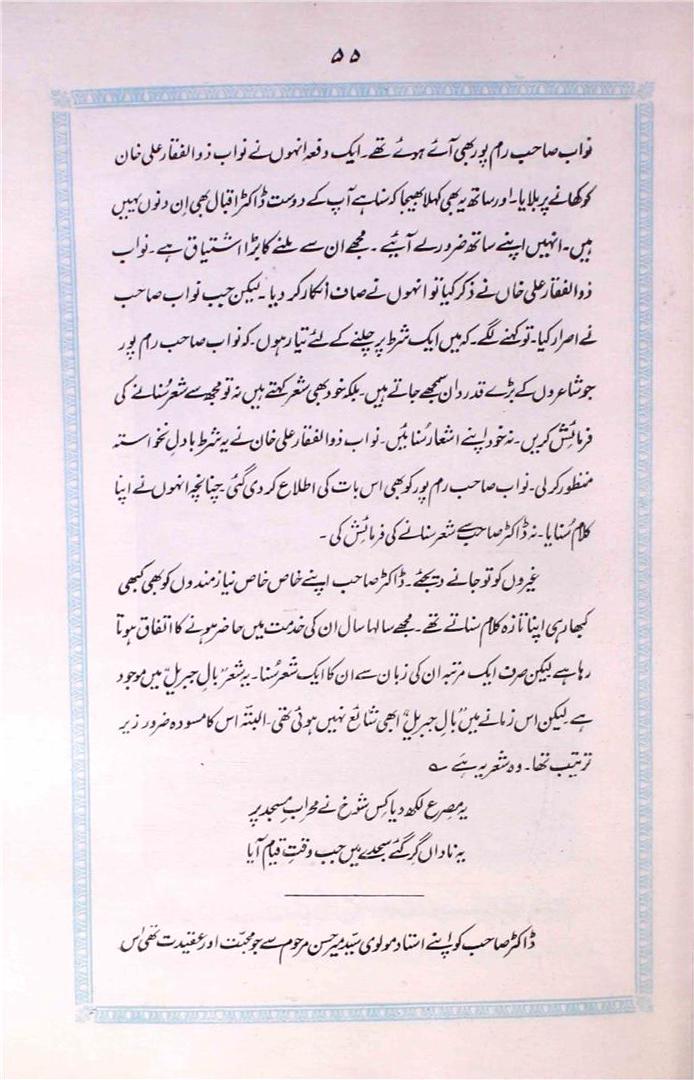 ۵۵
نواب صاحب رام پور بھی آئے ہوئے تھے۔ ایک دفعہ انہوں نے نواب ذوالفقار علی خان
کو کھانے پر بلایا۔ اور ساتھ یہ بھی کہلا بھیجا کہ سنا ہے آپ کے دوست ڈاکٹر اقبال بھی اِن دنوں یہیں
ہیں۔ انہیں اپنے ساتھ ضرور لے آئیے۔ مجھے ان سے ملنے کا بڑا اشتیاق ہے۔ نواب
ذوالفقار علی خاں نے ذکر کیا تو انہوں نے صاف انکار کر دیا۔ لیکن جب نواب صاحب
نے اصرار کیا۔ تو کہنے لگے۔ کہ میں ایک شرط پر چلنے کے لئے تیار ہوں۔ کہ نواب صاحب رام پور
جو شاعروں کے بڑے قدردان سمجھے جاتے ہیں۔ بلکہ خود بھی شعر کہتے ہیں نہ تو مجھ سے شعر سُنانے کی
فرمائش کریں۔ نہ خود اپنے اشعار سُنائیں۔ نواب ذوالفقار علی خان نے یہ شرط بادلِ نخواستہ
منظور کر لی۔ نواب صاحب رام پور کو بھی اس بات کی اطلاع کر دی گئی۔ چنانچہ انہوں نے اپنا
کلام سُنایا۔ نہ ڈاکٹر صاحب سے شعر سنانے کی فرمائش کی۔
غیروں کو تو جانے دیجئے۔ ڈاکٹر صاحب اپنے خاص خاص نیاز مندوں کو بھی کبھی
کبھار ہی اپنا تازہ کلام سناتے تھے۔ مجھے سالہا سال ان کی خدمت میں حاضر ہونے کا اتفاق ہوتا
رہا ہے لیکن صرف ایک مرتبہ ان کی زبان سے ان کا ایک شعر سُنا۔ یہ شعر "بالِ جبریل" میں موجود
ہے لیکن اس زمانے میں "بالِ جبریل" ابھی شائع نہیں ہوئی تھی۔ البتہ اس کا مسودہ ضرور زیر
ترتیب تھا۔ وہ شعر یہ ہے ؎
یہ مصرع لکھ دیا کِس شوخ نے محرابِ مسجد پر
یہ ناداں گر گئے سجدے میں جب وقتِ قیام آیا
ڈاکٹر صاحب کو اپنے استاد مولوی سیّد میر حسن مرحوم سے جو محبت اور عقیدت تھی اُس